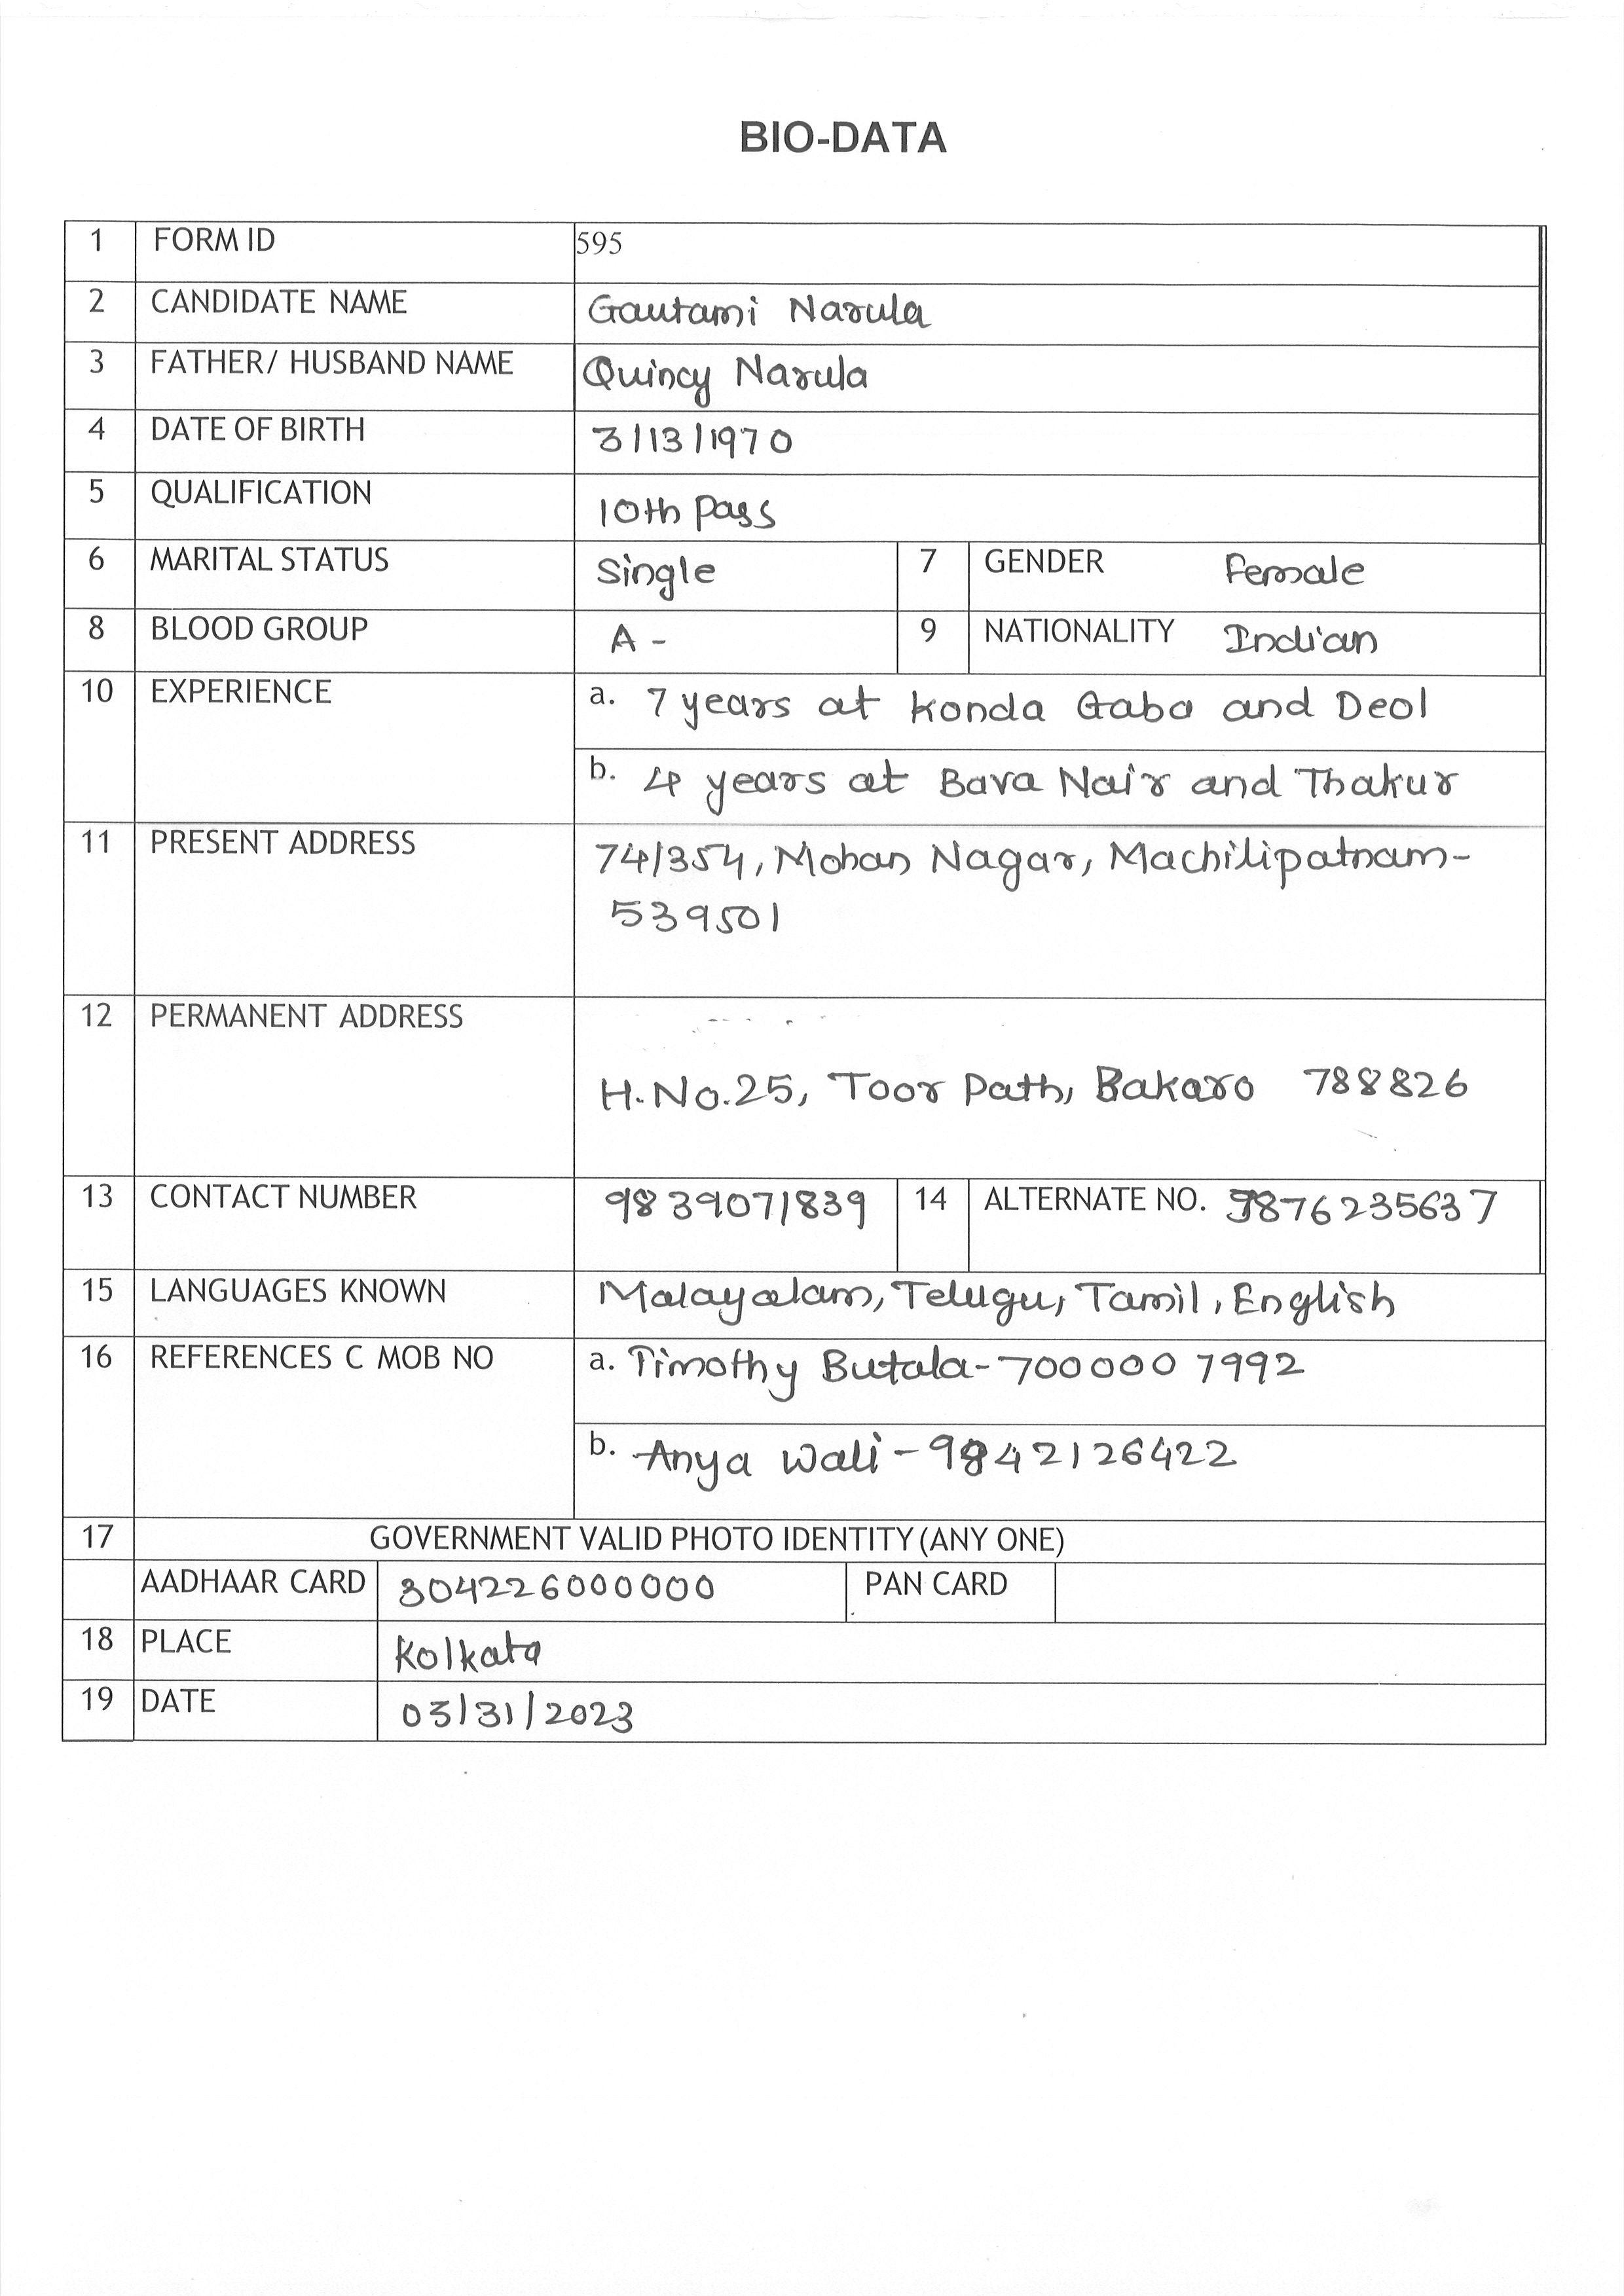 BIO-DATA
1 FORM ID 595
2 CANDIDATE NAME Gautami Narula
3 FATHER/ HUSBAND NAME Quincy Narula
4 DATE OF BIRTH 3/13/1970
5 QUALIFICATION 10th Pass
6 MARITAL STATUS Single 7 GENDER Female
8 BLOOD GROUP A- 9 NATIONALITY Indian
10 EXPERIENCE a. 7 years at Konda Gaba and Deol
b. 4 years at Bava Nair and Thakur
11 PRESENT ADDRESS 74/354, Mohan Nagar, Machilipatnam-
539501
12 PERMANENT ADDRESS
H.No.25, Toor Path, Bakaro 788826
13 CONTACT NUMBER 9839071839 14 ALTERNATE NO. 9876235637
15 LANGUAGES KNOWN Malayalam, Telugu, Tamil, English
16 REFERENCES C MOB NO a. Timothy Butala-7000007992
b. Anya Wali-9842126422
17 GOVERNMENT VALID PHOTO IDENTITY (ANY ONE)
AADHAAR CARD 304226000000 PAN CARD
18 PLACE Kolkata
19 DATE 03/31/2023